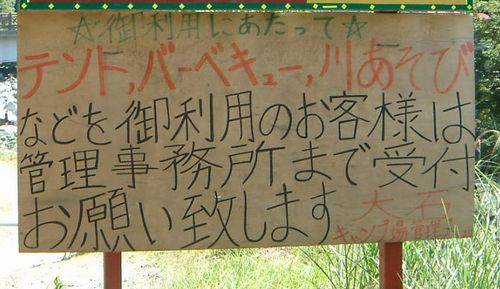 ☆御利用にあたって☆
テント,バーベキュー,川あそび
などを御利用のお客様は
管理事務所まで受付
お願い致します
大石
キャンプ場管理